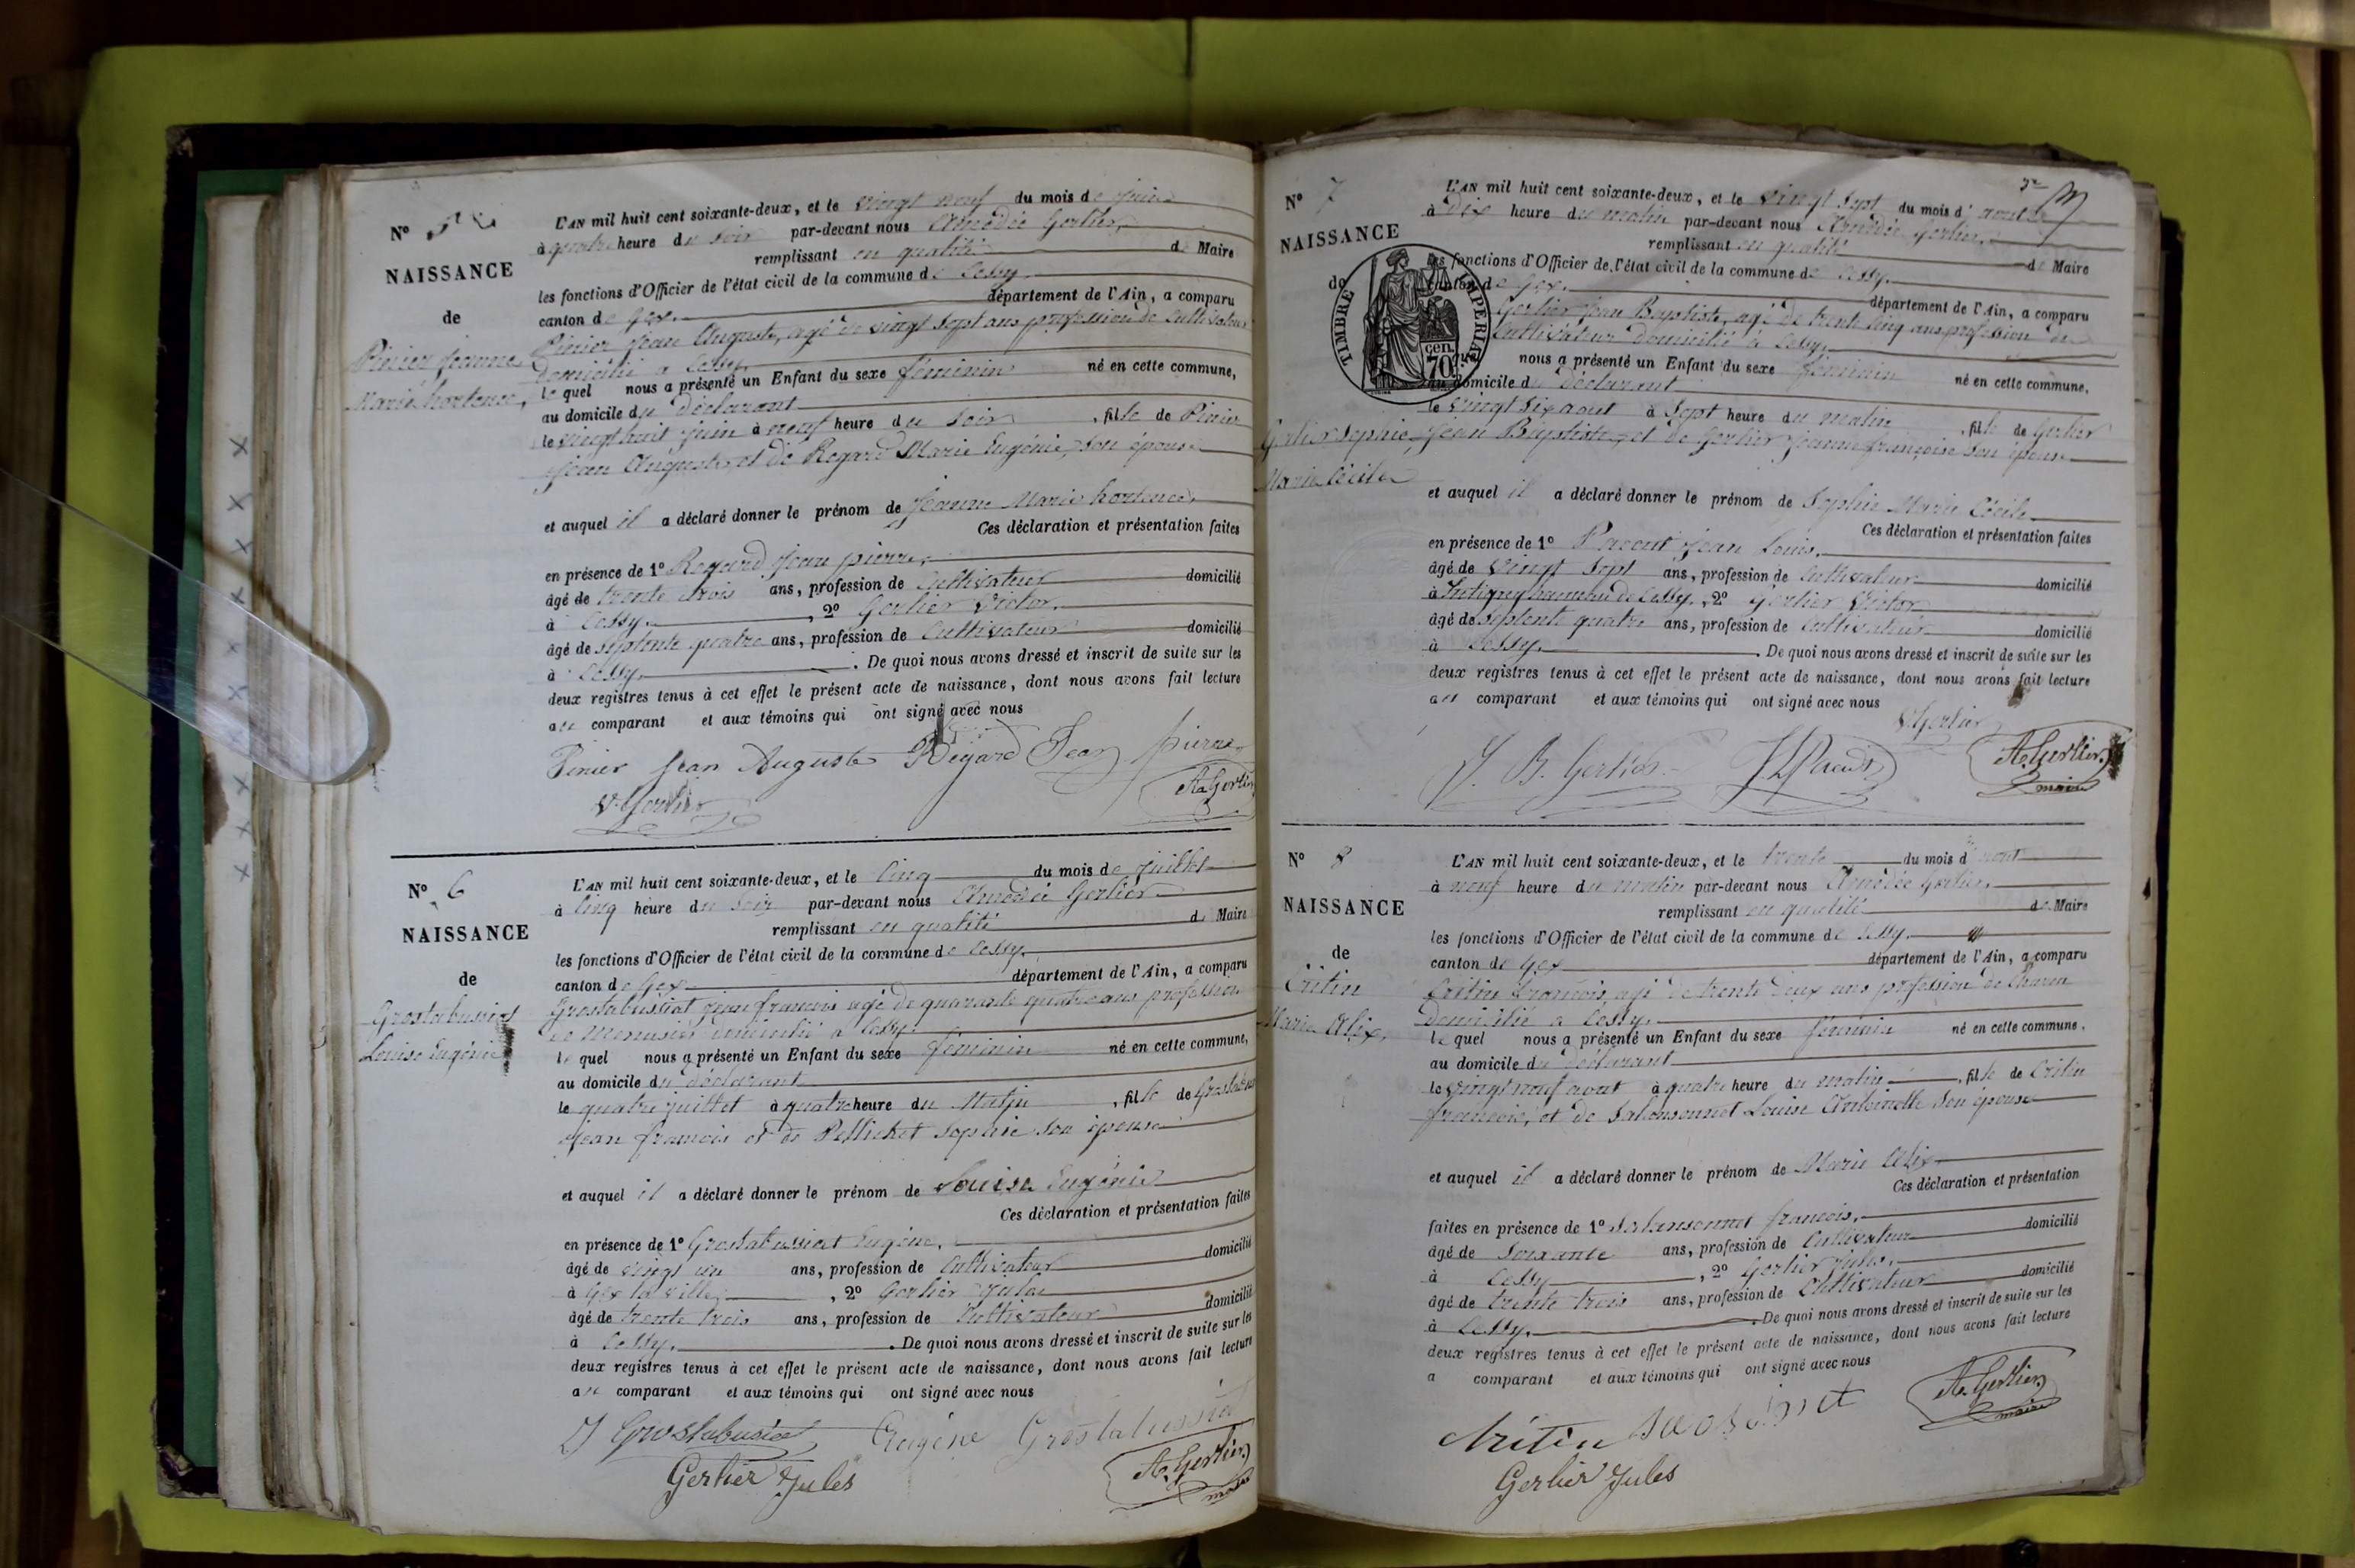 N° 5
NAISSANCE
de
Pinier Jeanne
Marie hortense,
L'AN mil huit cent soixante-deux, et le vingt neuf du mois de juin
à quatre heure du soir par-devant nous Amédée Gerlier,
remplissant en qualité de Maire
les fonctions d'Officier de l'état civil de la commune de Cessy
canton de Gex. département de l'Ain, a comparu
Pinier Jean Auguste, agé de vingt sept ans profession de Cultivateur
domicilié a Cessy,
le quel nous a présenté un Enfant du sexe féminin né en cette commune,
au domicile du déclarant
le vingt huit juin à neuf heure du soir , fille de Pinier
Jean Auguste et de Regard Marie Eugénie, son épouse
et auquel il a déclaré donner le prénom de Jeanne Marie hortence,
Ces déclaration et présentation faites
en présence de 1° Regard Jean pierre,
âgé de trente trois ans, profession de Cultivateur domicilié
à Cessy. , 2° Gerlier Victor,
âgé de septente quatre ans, profession de Cultivateur domicilié
à Cessy. . De quoi nous avons dressé et inscrit de suite sur les
deux registres tenus à cet effet le présent acte de naissance, dont nous avons fait lecture
au comparant et aux témoins qui ont signé avec nous
Pinier Jean Auguste Régard Jean pierre
V. Gerlier A. Gerlier
N° 6
NAISSANCE
de
Grostabussiat
Louise Eugénie
L'AN mil huit cent soixante-deux, et le Cinq du mois de juillet
à Cinq heure du soir par-devant nous Amédée Gerlier
remplissant en qualité de Maire
les fonctions d'Officier de l'état civil de la commune de Cessy
canton de Gex département de l'Ain, a comparu
Grostabussiat jean francois agé de quarante quatre ans profession
de Menusier domicilié a Cessy
le quel nous a présenté un Enfant du sexe feminin né en cette commune,
au domicile du déclarant
le quatre juillet à quatre heure du Matin , fille de
jean francois et de Pellichet Sophie son épouse
et auquel il a déclaré donner le prénom de Louise Eugénie
Ces déclaration et présentation faites
en présence de 1° Grostabussiat Eugène,
âgé de vingt un ans, profession de Cultivateur domicilié
à Gex la ville , 2° Gerlier jules
âgé de trente trois ans, profession de Cultivateur domicilié
à Cessy. . De quoi nous avons dressé et inscrit de suite sur les
deux registres tenus à cet effet le présent acte de naissance, dont nous avons fait lecture
au comparant et aux témoins qui ont signé avec nous
Grostabusiat Eugène Grostabussiat
Gerlier Jules A. Gerlier
maire
N° 7
NAISSANCE
de
TIMBRE IMPERIAL
cen. 70
Gerlier Sophie
Marie Cécile
L'AN mil huit cent soixante-deux, et le vingt sept du mois d'aout
à dix heure du matin par-devant nous Amédée Gerlier,
remplissant en qualité de Maire
les fonctions d'Officier de l'état civil de la commune de Cessy.
canton de Gex. département de l'Ain, a comparu
Gerlier Jean Baptiste, agé de trente cinq ans profession de
Cultivateur domicilié a Cessy.
nous a présenté un Enfant du sexe féminin né en cette commune,
au domicile du déclarant
le vingt six aout à sept heure du matin , fille de Gerlier
Jean Baptiste, et de Gerlier Jeanne françoise son épouse
et auquel il a déclaré donner le prénom de Sophie Marie Cécile
Ces déclaration et présentation faites
en présence de 1° Jean Louis,
âgé de vingt sept ans, profession de Cultivateur domicilié
à hameau de Cessy. , 2° Gerlier Victor
âgé de septente quatre ans, profession de Cultivateur domicilié
à Cessy. . De quoi nous avons dressé et inscrit de suite sur les
deux registres tenus à cet effet le présent acte de naissance, dont nous avons fait lecture
au comparant et aux témoins qui ont signé avec nous
V. Gerlier
J. B. Gerlier A. Gerlier
maire
N° 8
NAISSANCE
de
Critin
Marie Alix,
L'AN mil huit cent soixante-deux, et le trente du mois d'aout
à neuf heure du matin par-devant nous Amédée Gerlier,
remplissant en qualité de Maire
les fonctions d'Officier de l'état civil de la commune de Cessy.
canton de Gex département de l'Ain, a comparu
Critin francois, agé de trente deux ans profession de
domicilié a Cessy.
le quel nous a présenté un Enfant du sexe féminin né en cette commune,
au domicile du déclarant
le vingt neuf aout à quatre heure du matin , fille de Critin
francois, et de Louise Antoinette son épouse
et auquel il a déclaré donner le prénom de Marie Alix
Ces déclaration et présentation
faites en présence de 1° francois, domicilié
âgé de soixante ans, profession de Cultivateur
à Cessy , 2° Gerlier jules, domicilié
âgé de trente trois ans, profession de Cultivateur
à Cessy. . De quoi nous avons dressé et inscrit de suite sur les
deux registres tenus à cet effet le présent acte de naissance, dont nous avons fait lecture
a comparant et aux témoins qui ont signé avec nous
Critin A. Gerlier
maire
Gerlier Jules